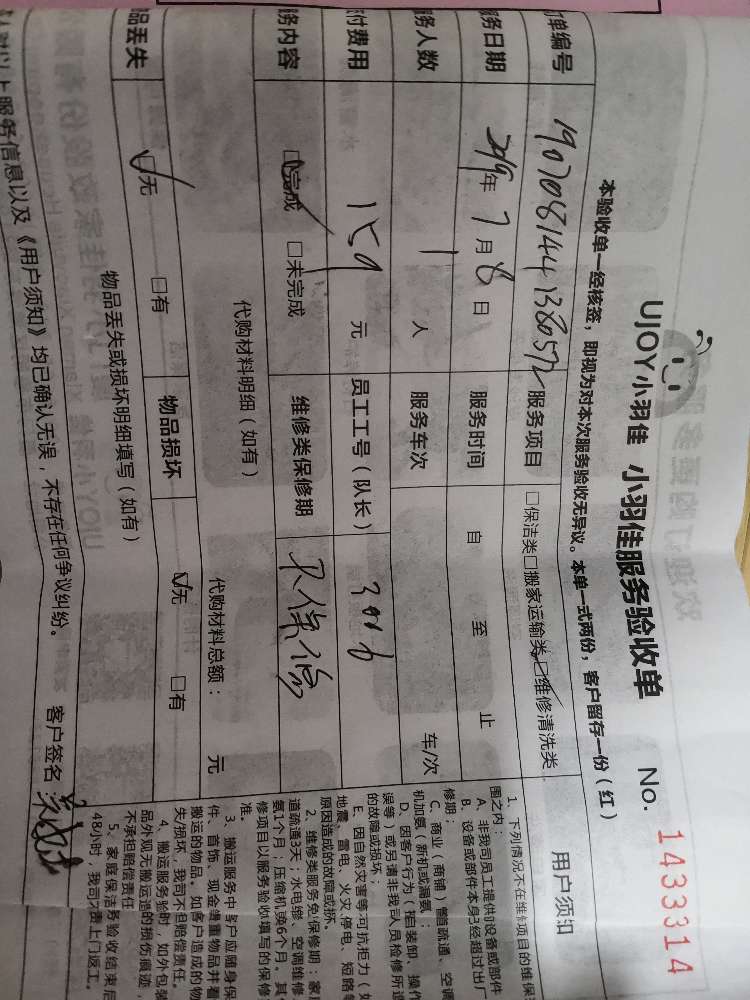 UJOY小羽佳 小羽佳服务验收单 No. 1433314
本验收单一经核签，即视为对本次服务验收无异议。本单一式两份，客户留存一份（红）
订单编号 服务项目 □保洁类□搬家运输类□维修清洗类
服务日期 2019年7月8日 服务时间 自 至 止
服务人数 1 人 服务车次 车/次
付费用 159 元 员工工号（队长）
务内容 □完成 □未完成 维修类保修期 不保修
代购材料明细（如有） 代购材料总额： 元
品丢失 □无 □有 物品损坏 □无 □有
物品丢失或损坏明细填写（如有）
以上服务信息以及《用户须知》均已确认无误，不存在任何争议纠纷。 客户签名：
用户须知
1、下列情况不在维修项目的维保
围之内：
A、非我司员工提供的设备或部件
B、设备或部件本身已经超过出厂
修期；
C、商业（商铺）管道疏通、空调
机加氨（新机或漏氨；
D、因客户行为（擅自装卸、操作
误等）或另请非我司人员检修所造
的故障或损坏；
E、因自然灾害等不可抗拒力（如
地震、雷电、火灾、停电、短路等
原因造成的故障或损坏。
2、维修类服务免保修期：家庭
道疏通3天；水电维、空调维修
氨1个月；压缩机换6个月。其
修项目以服务验收填写的保修
准。
3、搬运服务中客户应随身保
件、首饰、现金贵重物品并看
搬运的物品。如客户造成的物
失/损坏，我司不担赔偿责任。
4、搬运服务验时，如外包装
品外观无搬运造的损伤痕迹，
不承担赔偿责任
5、家庭保洁务验收结束后
48小时，我司不责上门返工。